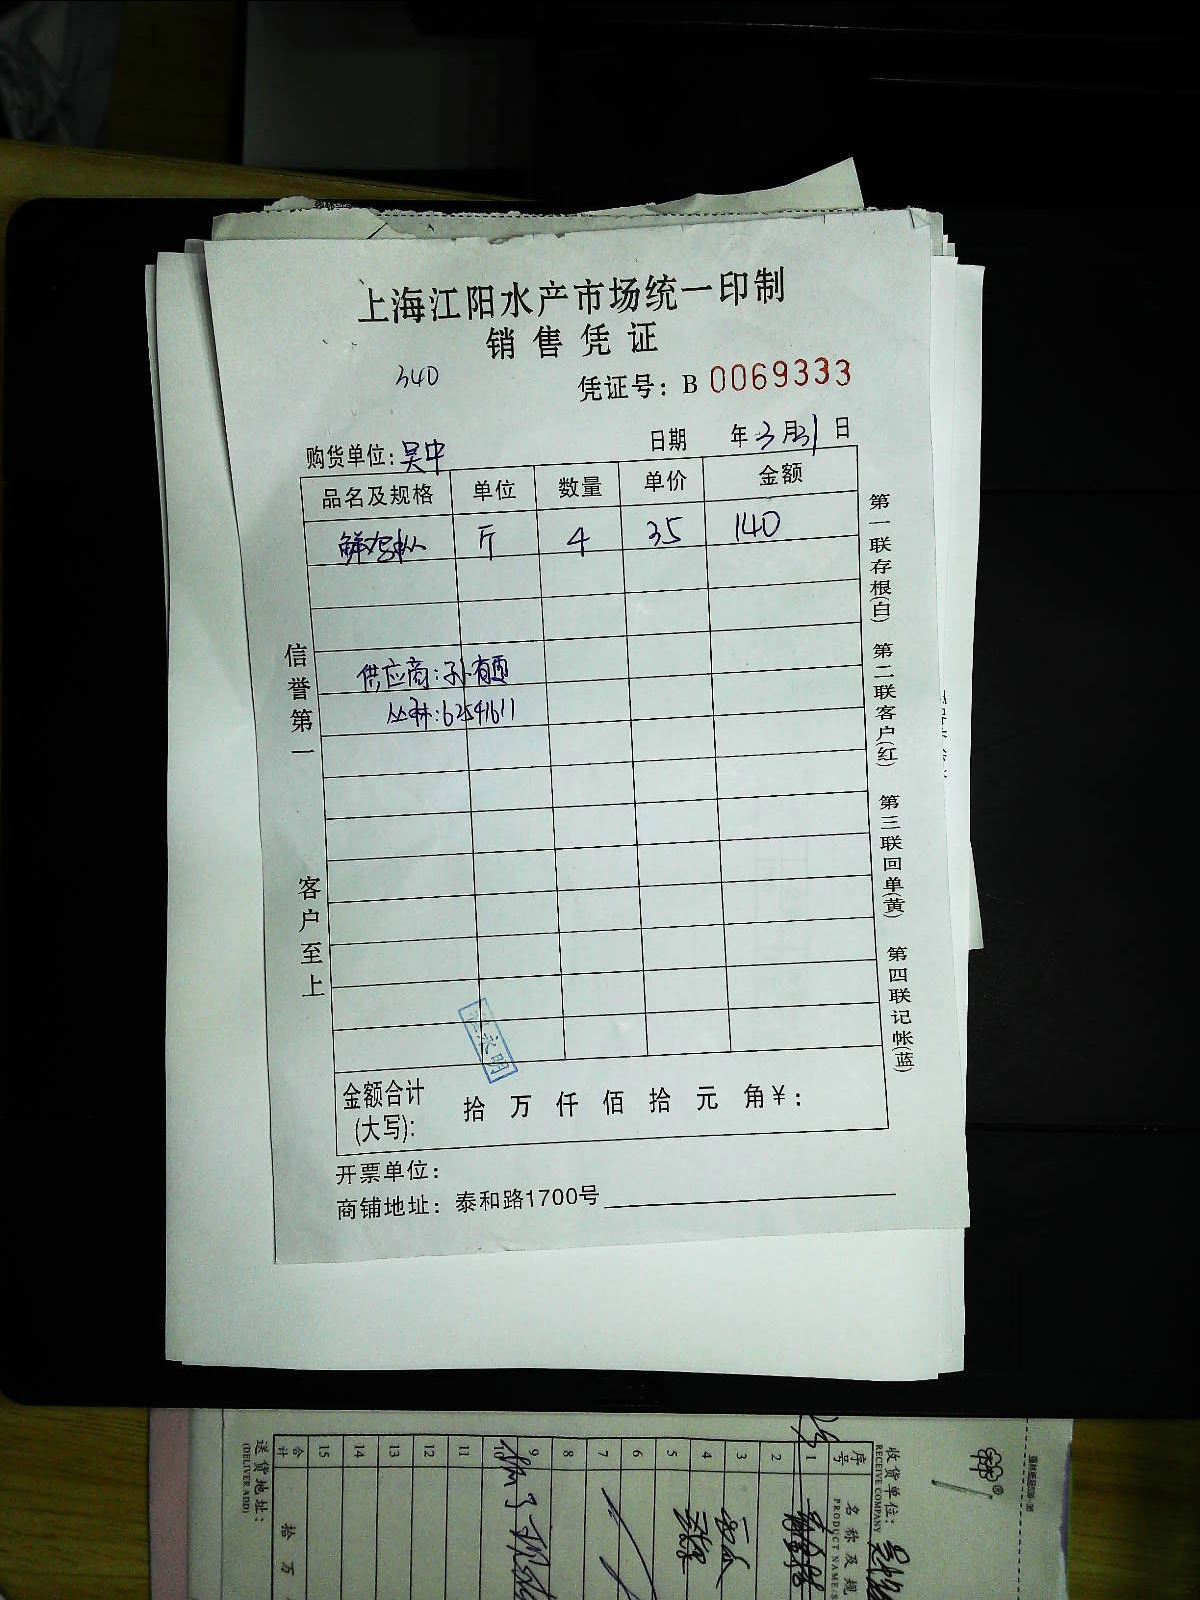 上海江阳水产市场统一印制
销售凭证
340
凭证号：B 0069333
购货单位：吴中
日期 年 3月31日
品名及规格 单位 数量 单价 金额
斤 4 35 140
供应商：孙有
62541611
信誉第一
客户至上
第一联存根(白) 第二联客户(红) 第三联回单(黄) 第四联记帐(蓝)
永明
金额合计(大写)： 拾 万 仟 佰 拾 元 角￥：
开票单位：
商铺地址：泰和路1700号
收货单位：
RECEIVE COMPANY
序号 名称及规
PRODUCT NAME
1
2
3
4
5
6
7
8
9
10
11
12
13
14
15
合计 拾 万
送货地址：
(DELIVER ADD)